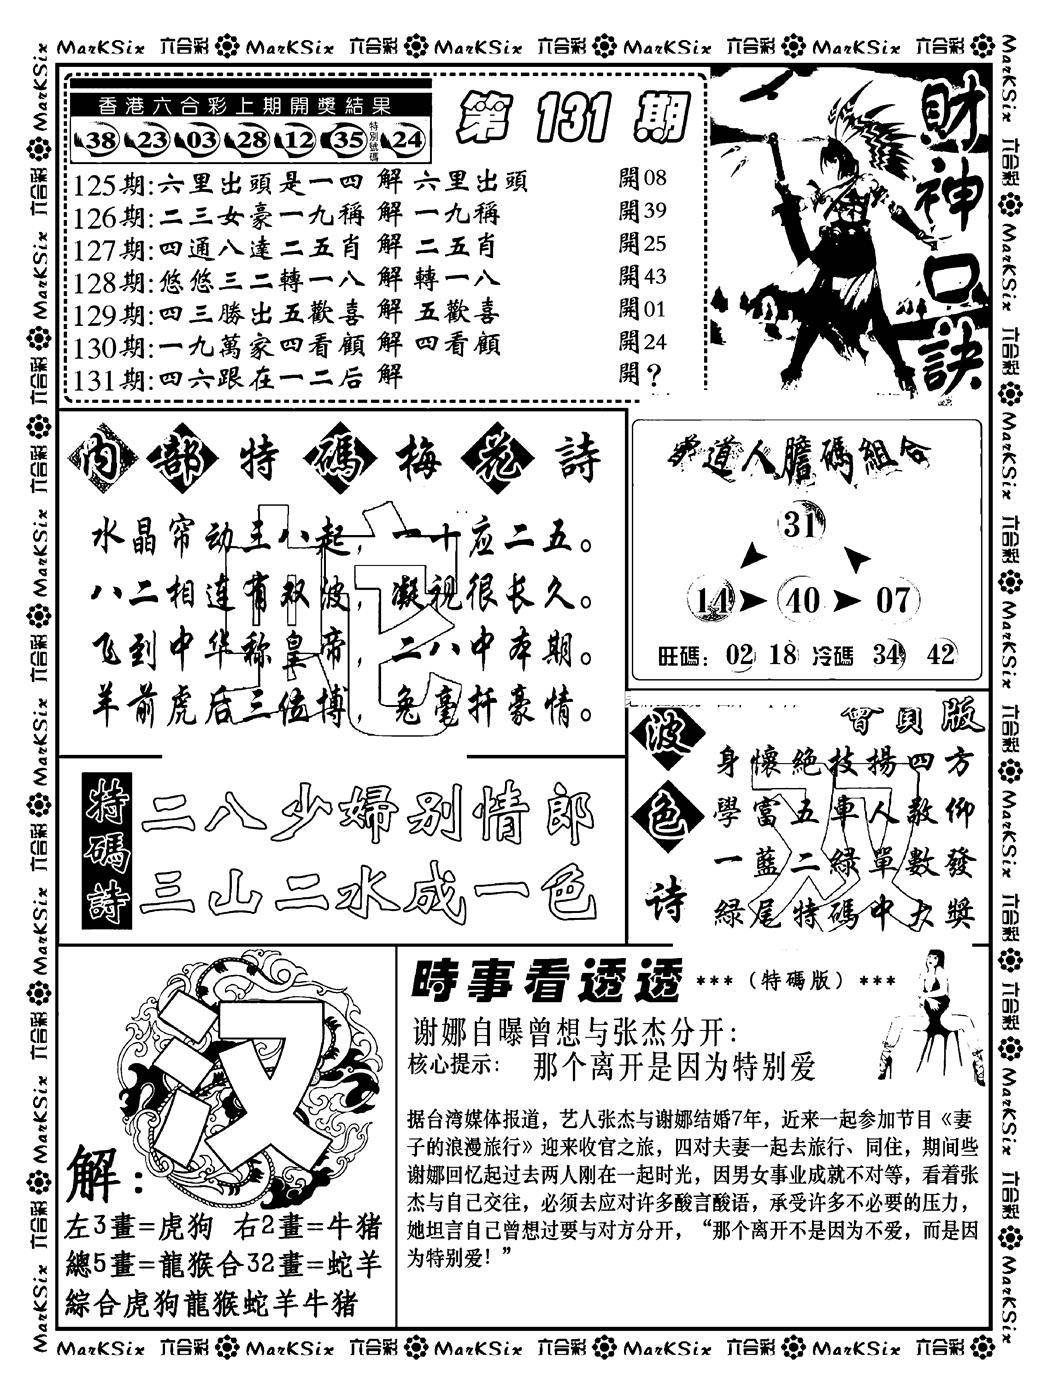 MarKSix 六合彩 MarKSix 六合彩 MarKSix 六合彩 MarKSix 六合彩 MarKSix 六合彩
香港六合彩上期開獎結果
38 23 03 28 12 35 特別號碼 24
第 131 期
125期:六里出頭是一四 解 六里出頭 開08
126期:二三女豪一九稱 解 一九稱 開39
127期:四通八達二五肖 解 二五肖 開25
128期:悠悠三二轉一八 解 轉一八 開43
129期:四三勝出五歡喜 解 五歡喜 開01
130期:一九萬家四看顧 解 四看顧 開24
131期:四六跟在一二后 解 開?
財神口訣
內部特碼梅花詩
水晶帘动王八起，一十应二五。
八二相连有双波，凝视很长久。
飞到中华称皇帝，二八中本期。
羊前虎后三位博，兔毫扦豪情。
蛇
道人膽碼組合
31
14 40 07
旺碼：02 18 冷碼 34 42
特碼詩
二八少婦别情郎
三山二水成一色
波色诗
會員版
身懷絕技揚四方
學富五車人敬仰
一藍二綠單數發
綠尾特碼中大獎
双
汉
解：
左3畫=虎狗 右2畫=牛猪
總5畫=龍猴合32畫=蛇羊
綜合虎狗龍猴蛇羊牛猪
時事看透透 ***（特碼版）***
谢娜自曝曾想与张杰分开：
核心提示： 那个离开是因为特别爱
据台湾媒体报道，艺人张杰与谢娜结婚7年，近来一起参加节目《妻
子的浪漫旅行》迎来收官之旅，四对夫妻一起去旅行、同住，期间些
谢娜回忆起过去两人刚在一起时光，因男女事业成就不对等，看着张
杰与自己交往，必须去应对许多酸言酸语，承受许多不必要的压力，
她坦言自己曾想过要与对方分开，“那个离开不是因为不爱，而是因
为特别爱！”
MarKSix 六合彩 MarKSix 六合彩 MarKSix 六合彩 MarKSix 六合彩 MarKSix 六合彩